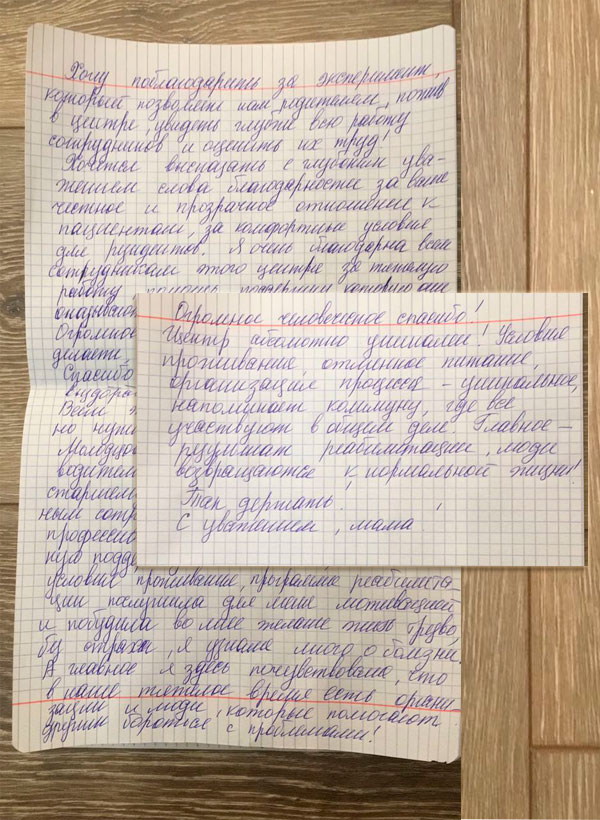 Хочу поблагодарить за эксперимент,
который позволяет нам родителям, пожив
в центре, увидеть глубже всю работу
сотрудников и оценить их труд!
Хочется высказать с глубоким ува-
жением слова благодарности за ваше
честное и прозрачное отношение к
пациентам, за комфортные условия
для резидентов. Я очень благодарна всем
сотрудникам этого центра за тяжелую
работу, помощь, поддержку, которую они
оказывают
Огромное
делаете
Спасибо
Всем
но нужн
Молодцо
водител
старшем
ным сотр
профессио
ную подде
условия проживания, программа реабилита-
ции послужила для меня мотивацией
и побудила во мне желание жить трезво,
без страха, я узнала много о болезни.
А главное я здесь почувствовала, что
в наше тяжелое время есть органи
зации и люди, которые помогают
другим бороться с проблемами!
Огромное человеческое спасибо!
Центр абсолютно уникален! Условия
проживания, отличное питание,
организация процесса – уникальное,
напоминает коммуну, где все
участвуют в общем деле. Главное –
результат реабилитации, люди
возвращаются к нормальной жизни!
Так держать!
С уважением, мама